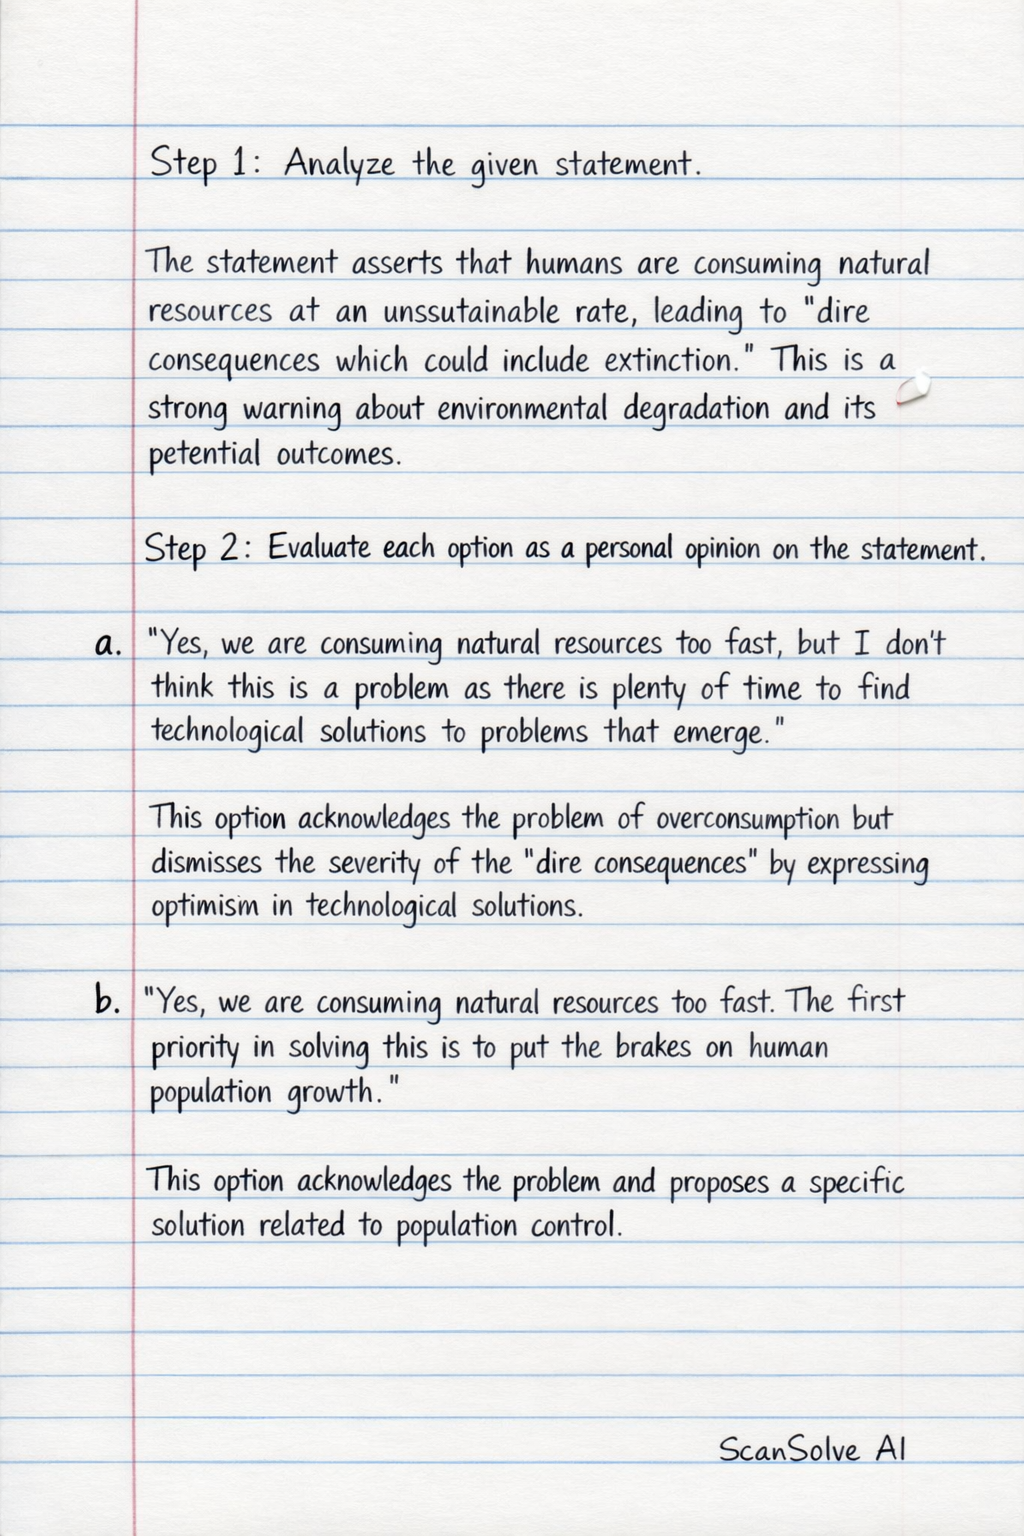 Step 1: Analyze the given statement.
The statement asserts that humans are consuming natural
resources at an unssutainable rate, leading to "dire
consequences which could include extinction." This is a
strong warning about environmental degradation and its
petential outcomes.
Step 2: Evaluate each option as a personal opinion on the statement.
a. "Yes, we are consuming natural resources too fast, but I don't
think this is a problem as there is plenty of time to find
technological solutions to problems that emerge."
This option acknowledges the problem of overconsumption but
dismisses the severity of the "dire consequences" by expressing
optimism in technological solutions.
b. "Yes, we are consuming natural resources too fast. The first
priority in solving this is to put the brakes on human
population growth."
This option acknowledges the problem and proposes a specific
solution related to population control.
ScanSolve AI